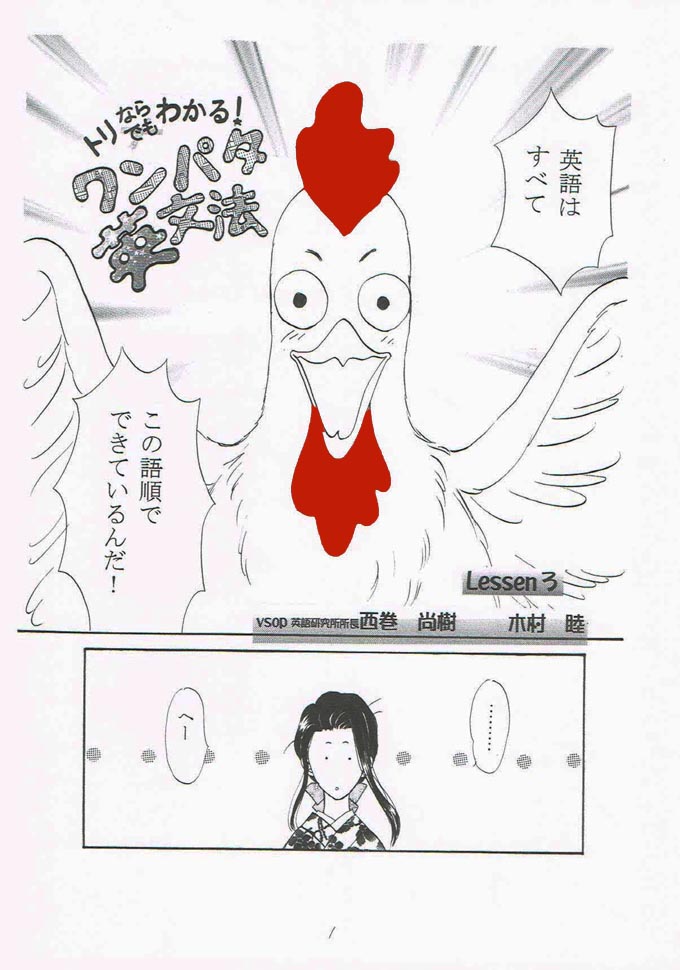 トリならでもわかる!
ワンパタ
英文法
英語は
すべて
この語順で
できているんだ!
Lessen 3
VSOP 英語研究所所長 西巻 尚樹 木村 睦
………
へー
1